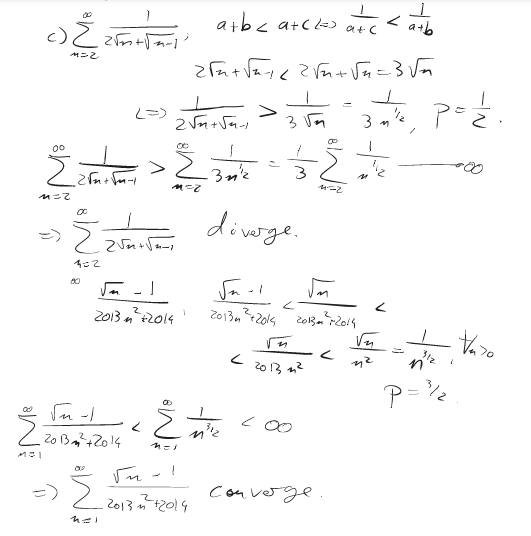 c) ∑_{n=2}^{∞} 1/(2√n+√(n-1)), a+b < a+c <=> 1/(a+c) < 1/(a+b)
2√n+√(n-1) < 2√n+√n = 3√n
<=> 1/(2√n+√(n-1)) > 1/(3√n) = 1/(3n^{1/2}), P = 1/2.
∑_{n=2}^{∞} 1/(2√n+√(n-1)) > ∑_{n=2}^{∞} 1/(3n^{1/2}) = 1/3 ∑_{n=2}^{∞} 1/n^{1/2} → ∞
=> ∑_{n=2}^{∞} 1/(2√n+√(n-1)) diverge.
∞ (√n - 1)/(2013n²+2014), (√n - 1)/(2013n²+2014) < √n/(2013n²+2014) <
< √n/(2013n²) < √n/n² = 1/n^{3/2}, ∀n>0
P = 3/2.
∑_{n=1}^{∞} (√n - 1)/(2013n²+2014) < ∑_{n=1}^{∞} 1/n^{3/2} < ∞
=> ∑_{n=1}^{∞} (√n - 1)/(2013n²+2014) converge.